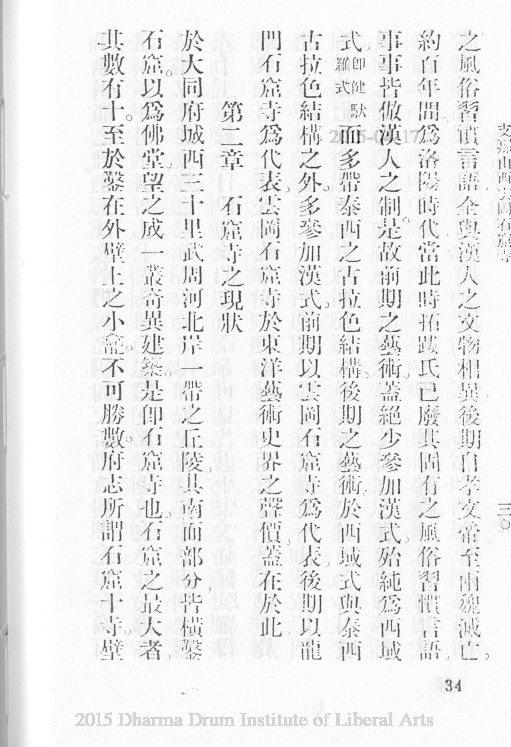 支那山西雲岡石窟寺
三〇
之風俗習慣言語全與漢人之文物相異後期自孝文帝至兩魏滅亡
約百年間。爲洛陽時代當此時拓跋氏已廢其固有之風俗習慣言語
事事皆倣漢人之制。是故前期之藝術。蓋絕少參加漢式。殆純爲西域
式。卽健馱羅式而多帶泰西之古拉色結構。後期之藝術。於西域式與泰西
古拉色結構之外。多參加漢式。前期以雲岡石窟寺爲代表。後期以龍
門石窟寺爲代表。雲岡石窟寺於東洋藝術史界之聲價。蓋在於此。
第二章　石窟寺之現狀
於大同府城西三十里武周河北岸一帶之丘陵。其南面部分。皆橫鑿
石窟。以爲佛堂。望之成一叢奇異建築。是卽石窟寺也。石窟之最大者。
其數有十。至於鑿在外壁上之小龕。不可勝數。府志所謂石窟十寺。壁
34
2015 Dharma Drum Institute of Liberal Arts